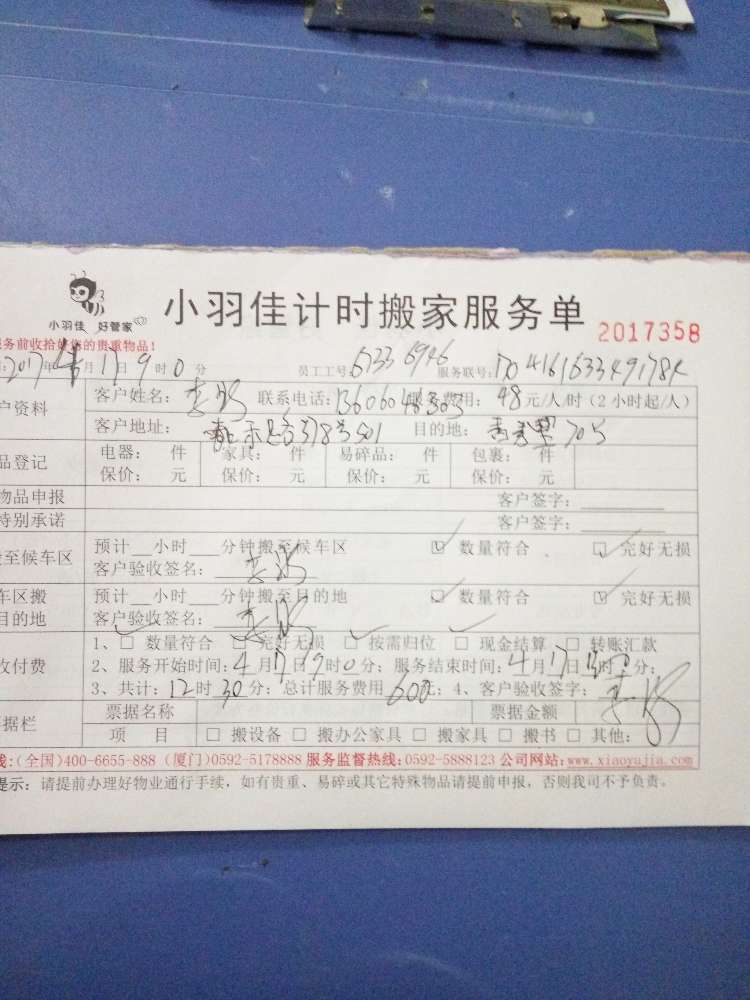 小羽佳 好管家
小羽佳计时搬家服务单
2017358
务前收拾好您的贵重物品!
2017年4月17日9时0分 员工工号 6733 6946 服务联号:
户资料 客户姓名: 联系电话: 服务费用: 48元/人/时(2小时起/人)
客户地址: 378号501 目的地:
品登记 电器: 件 家具: 件 易碎品: 件 包裹: 件
保价: 元 保价: 元 保价: 元 保价: 元
物品申报 客户签字:
特别承诺 客户签字:
至候车区 预计__小时__分钟搬至候车区 ☑ 数量符合、 ☑ 完好无损
客户验收签名:
车区搬 预计__小时__分钟搬至目的地 ☑ 数量符合 ☑ 完好无损
目的地 客户验收签名:
收付费 1、□ 数量符合 □ 完好无损 □ 按需归位 □ 现金结算 □ 转账汇款
2、服务开始时间:4月17日9时0分;服务结束时间:4月17日 时 分;
3、共计:12时30分;总计服务费用600元;4、客户验收签字:
据栏 票据名称 票据金额
项 目 □ 搬设备 □ 搬办公家具 □ 搬家具 □ 搬书 □ 其他:
线:(全国)400-6655-888 (厦门)0592-5178888 服务监督热线:0592-5888123 公司网站:www.xiaoyujia.com
提示:请提前办理好物业通行手续,如有贵重、易碎或其它特殊物品请提前申报,否则我司不予负责。